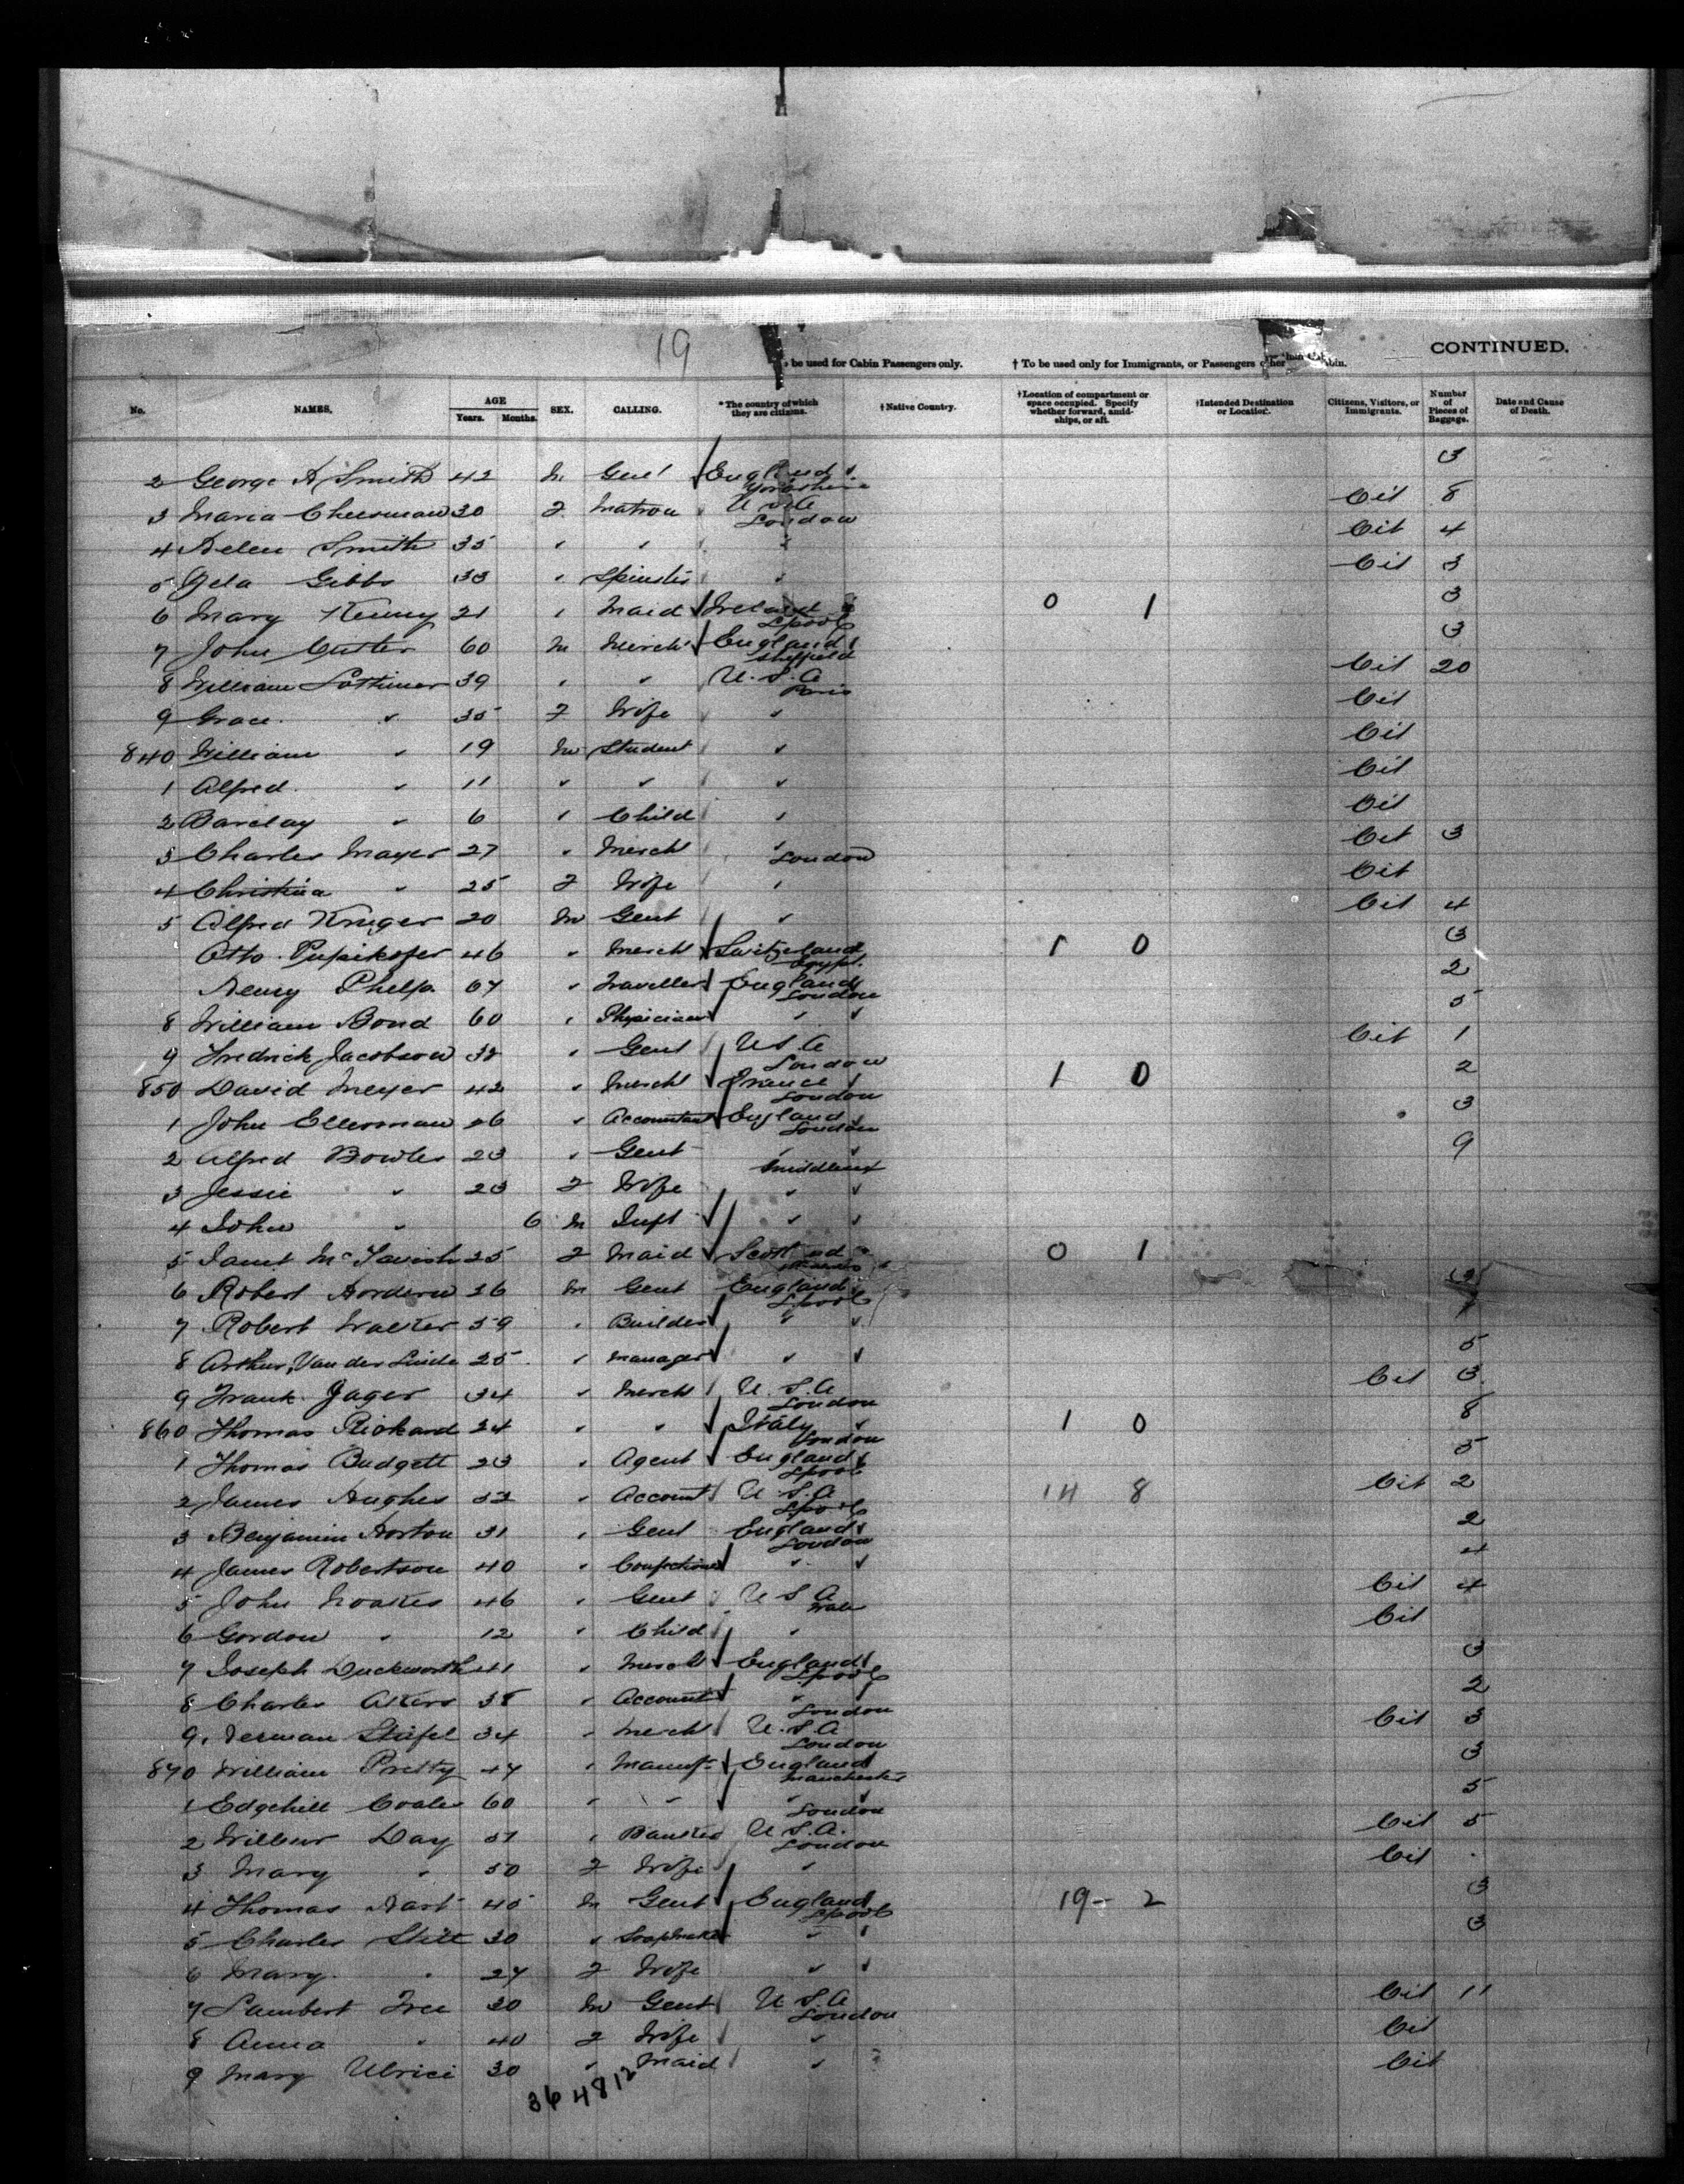 19
be used for Cabin Passengers only. † To be used only for Immigrants, or Passengers other than Cabin. CONTINUED.
No. NAMES. AGE Years. Months. SEX. CALLING. *The country of which they are citizens. †Native Country. †Location of compartment or space occupied. Specify whether forward, amidships, or aft. †Intended Destination or Location. Citizens, Visitors, or Immigrants. Number of Pieces of Baggage. Date and Cause of Death.
2 George A Smith 42 m Gent England Yorkshire 3
3 Maria Cheesman 30 F Matron U S A London Cit 8
4 Helen Smith 35 " " " Cit 4
5 Gibbs 33 " Spinster " Cit 3
6 Mary Kenny 21 " Maid Ireland Lpool 0 1 3
7 John 60 m Mercht England Sheffield 3
8 William Lattimer 39 " " U.S.A Paris Cit 20
9 Grace " 35 F Wife " Cit
840 William " 19 m Student " Cit
1 Alfred " 11 " " " Cit
2 Barclay " 6 " Child " Cit
3 Charles Mayer 27 " Mercht " London Cit 3
4 Christina " 25 F Wife " Cit
5 Alfred Kruger 20 m Gent " Cit 4
Otto Pupikofer 46 " Mercht Switzerland Egypt 1 0 3
Henry Phelp 67 " Traveller England London 2
8 William Bond 60 " Physician " 5
9 Fredrick Jacobson 38 " Gent U S A London Cit 1
850 David Meyer 42 " Mercht France London 1 0 2
1 John Ellerman 26 " Accountant England London 3
2 Alfred Bowles 23 " Gent " Middlesex 9
3 Jessie " 23 F Wife "
4 John " 6 m Inft "
5 Janet McTavish 25 F Maid Scotland 0 1
6 Robert Hordern 36 m Gent England Lpool
7 Robert Walker 59 " Builder "
8 Arthur Van der Linde 25 " Manager " 5
9 Frank Jager 34 " Mercht U.S.A London Cit 3
860 Thomas Rickard 24 " " Italy London 1 0 8
1 Thomas Budgett 23 " Agent England Lpool 5
2 James Hughes 32 " Account U S A Lpool 14 8 Cit 2
3 Benjamin Horton 31 " Gent England London 2
4 James Robertson 40 " Confectioner " 4
5 John Noakes 46 " Gent U S A Cit 4
6 Gordon " 12 " Child " Cit
7 Joseph Duckworth 41 " Mercht England Lpool 3
8 Charles Akers 38 " Account " London 2
9 Herman Stifel 34 " Mercht U.S.A London Cit 3
870 William Pretty 47 " Manuf England Manchester 3
1 Edgehill Coales 60 " " " London 5
2 Wilbur Day 51 " Banker U.S.A. London Cit 5
3 Mary " 50 F Wife " Cit
4 Thomas Hart 45 m Gent England Lpool 19 - 2 3
5 Charles Stitt 30 " Soapmaker " 3
6 Mary " 27 F Wife "
7 Lambert Tree 30 m Gent U S A London Cit 11
8 Anna " 40 F Wife " Cit
9 Mary Ulrici 30 " Maid " Cit
36 48 12